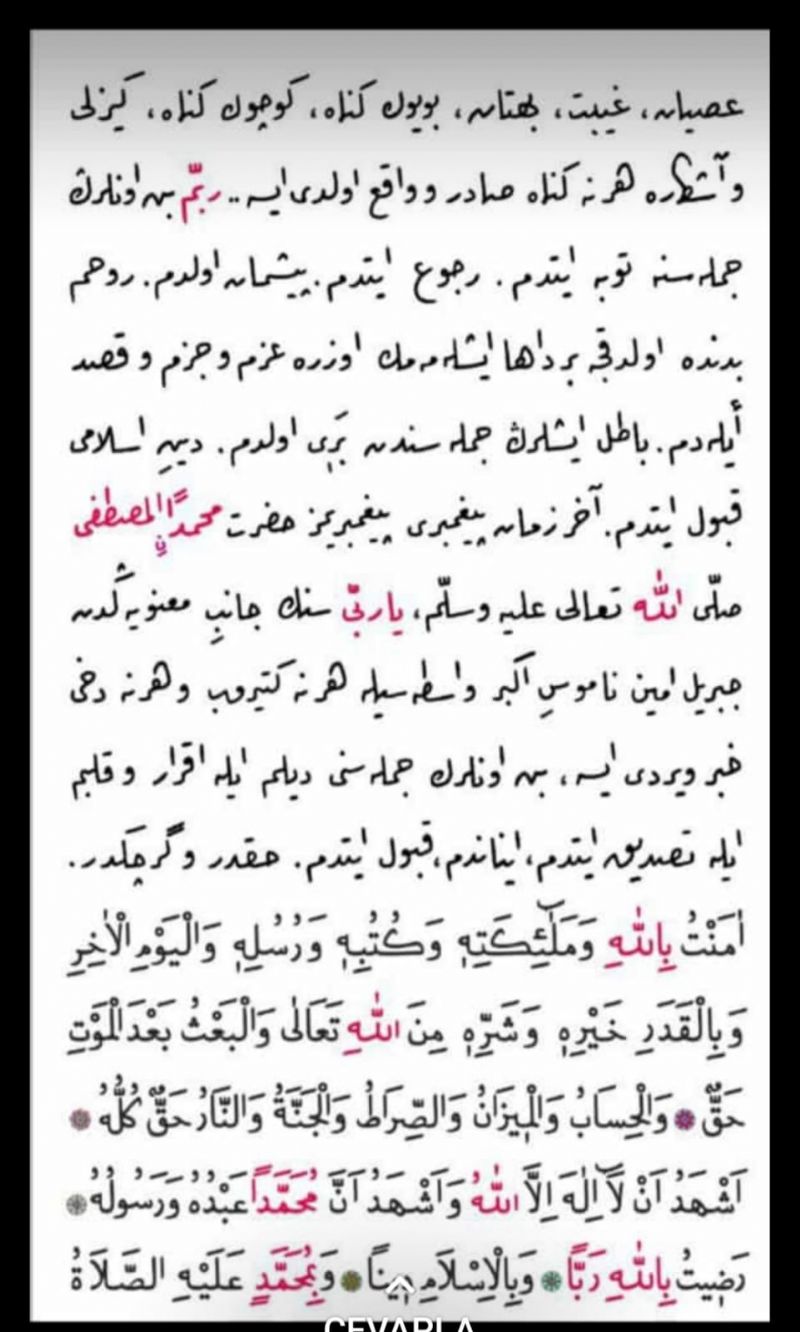 عصيان، غيبت، بهتان، بويوك كناه، كوچوك كناه، كيزلى
وآشكاره هر نه كناه صادر و واقع اولدى ايسه.. ربّم بن اونلرڭ
جمله سنه توبه ايتدم. رجوع ايتدم. پيشمان اولدم. روحم
بدنده اولدقجه بر داها ايشله مه مك اوزره عزم و جزم و قصد
أيله دم. باطل ايشلرڭ جمله سندن بَرِى اولدم. دينِ اسلامى
قبول ايتدم. آخر زمان پيغمبرى پيغمبريمز حضرت محمدًا المصطفى
صلّى الله تعالى عليه وسلّم، يا ربّى سنك جانبِ معنويه ڭدن
جبريل امين ناموسِ اكبر واسطه سيله هر نه كتيروب و هر نه دخى
خبر ويردى ايسه، بن اونلرك جمله سنى ديلم ايله اقرار و قلبم
ايله تصديق ايتدم، ايناندم، قبول ايتدم. حقدر و گرچكدر.
اٰمَنْتُ بِاللّٰهِ وَمَلٰٓئِكَتِهٖ وَكُتُبِهٖ وَرُسُلِهٖ وَالْيَوْمِ الْاٰخِرِ
وَبِالْقَدَرِ خَيْرِهٖ وَشَرِّهٖ مِنَ اللّٰهِ تَعَالٰى وَالْبَعْثُ بَعْدَ الْمَوْتِ
حَقٌّ وَالْحِسَابُ وَالْمٖيزَانُ وَالصِّرَاطُ وَالْجَنَّةُ وَالنَّارُ حَقٌّ كُلُّهُ
اَشْهَدُ اَنْ لَٓا اِلٰهَ اِلَّا اللّٰهُ وَاَشْهَدُ اَنَّ مُحَمَّدًا عَبْدُهُ وَرَسُولُهُ
رَضٖيتُ بِاللّٰهِ رَبًّا وَبِالْاِسْلَامِ دٖينًا وَبِمُحَمَّدٍ عَلَيْهِ الصَّلَاةُ
CEVAPLA